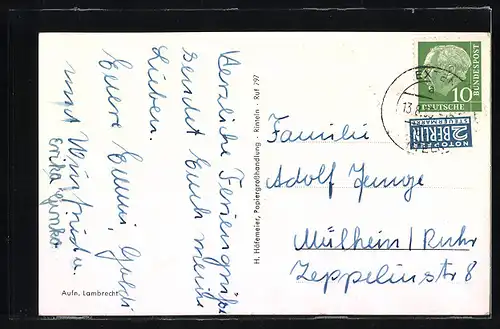 Herzliche Feriengrüße
sendet Euch meine
Lieben.
Euere Emmi, Gold
und Winfriede.
Erika
Aufn. Lambrecht
H. Höfemeier, Papiergroßhandlung · Rinteln · Ruf 797
EXTE
13.
10
DEUTSCHE
BUNDESPOST
NOTOPFER
2 BERLIN
STEUERMARKE
Familie
Adolf Junge
Mülheim/Ruhr
Zeppelinstr 8